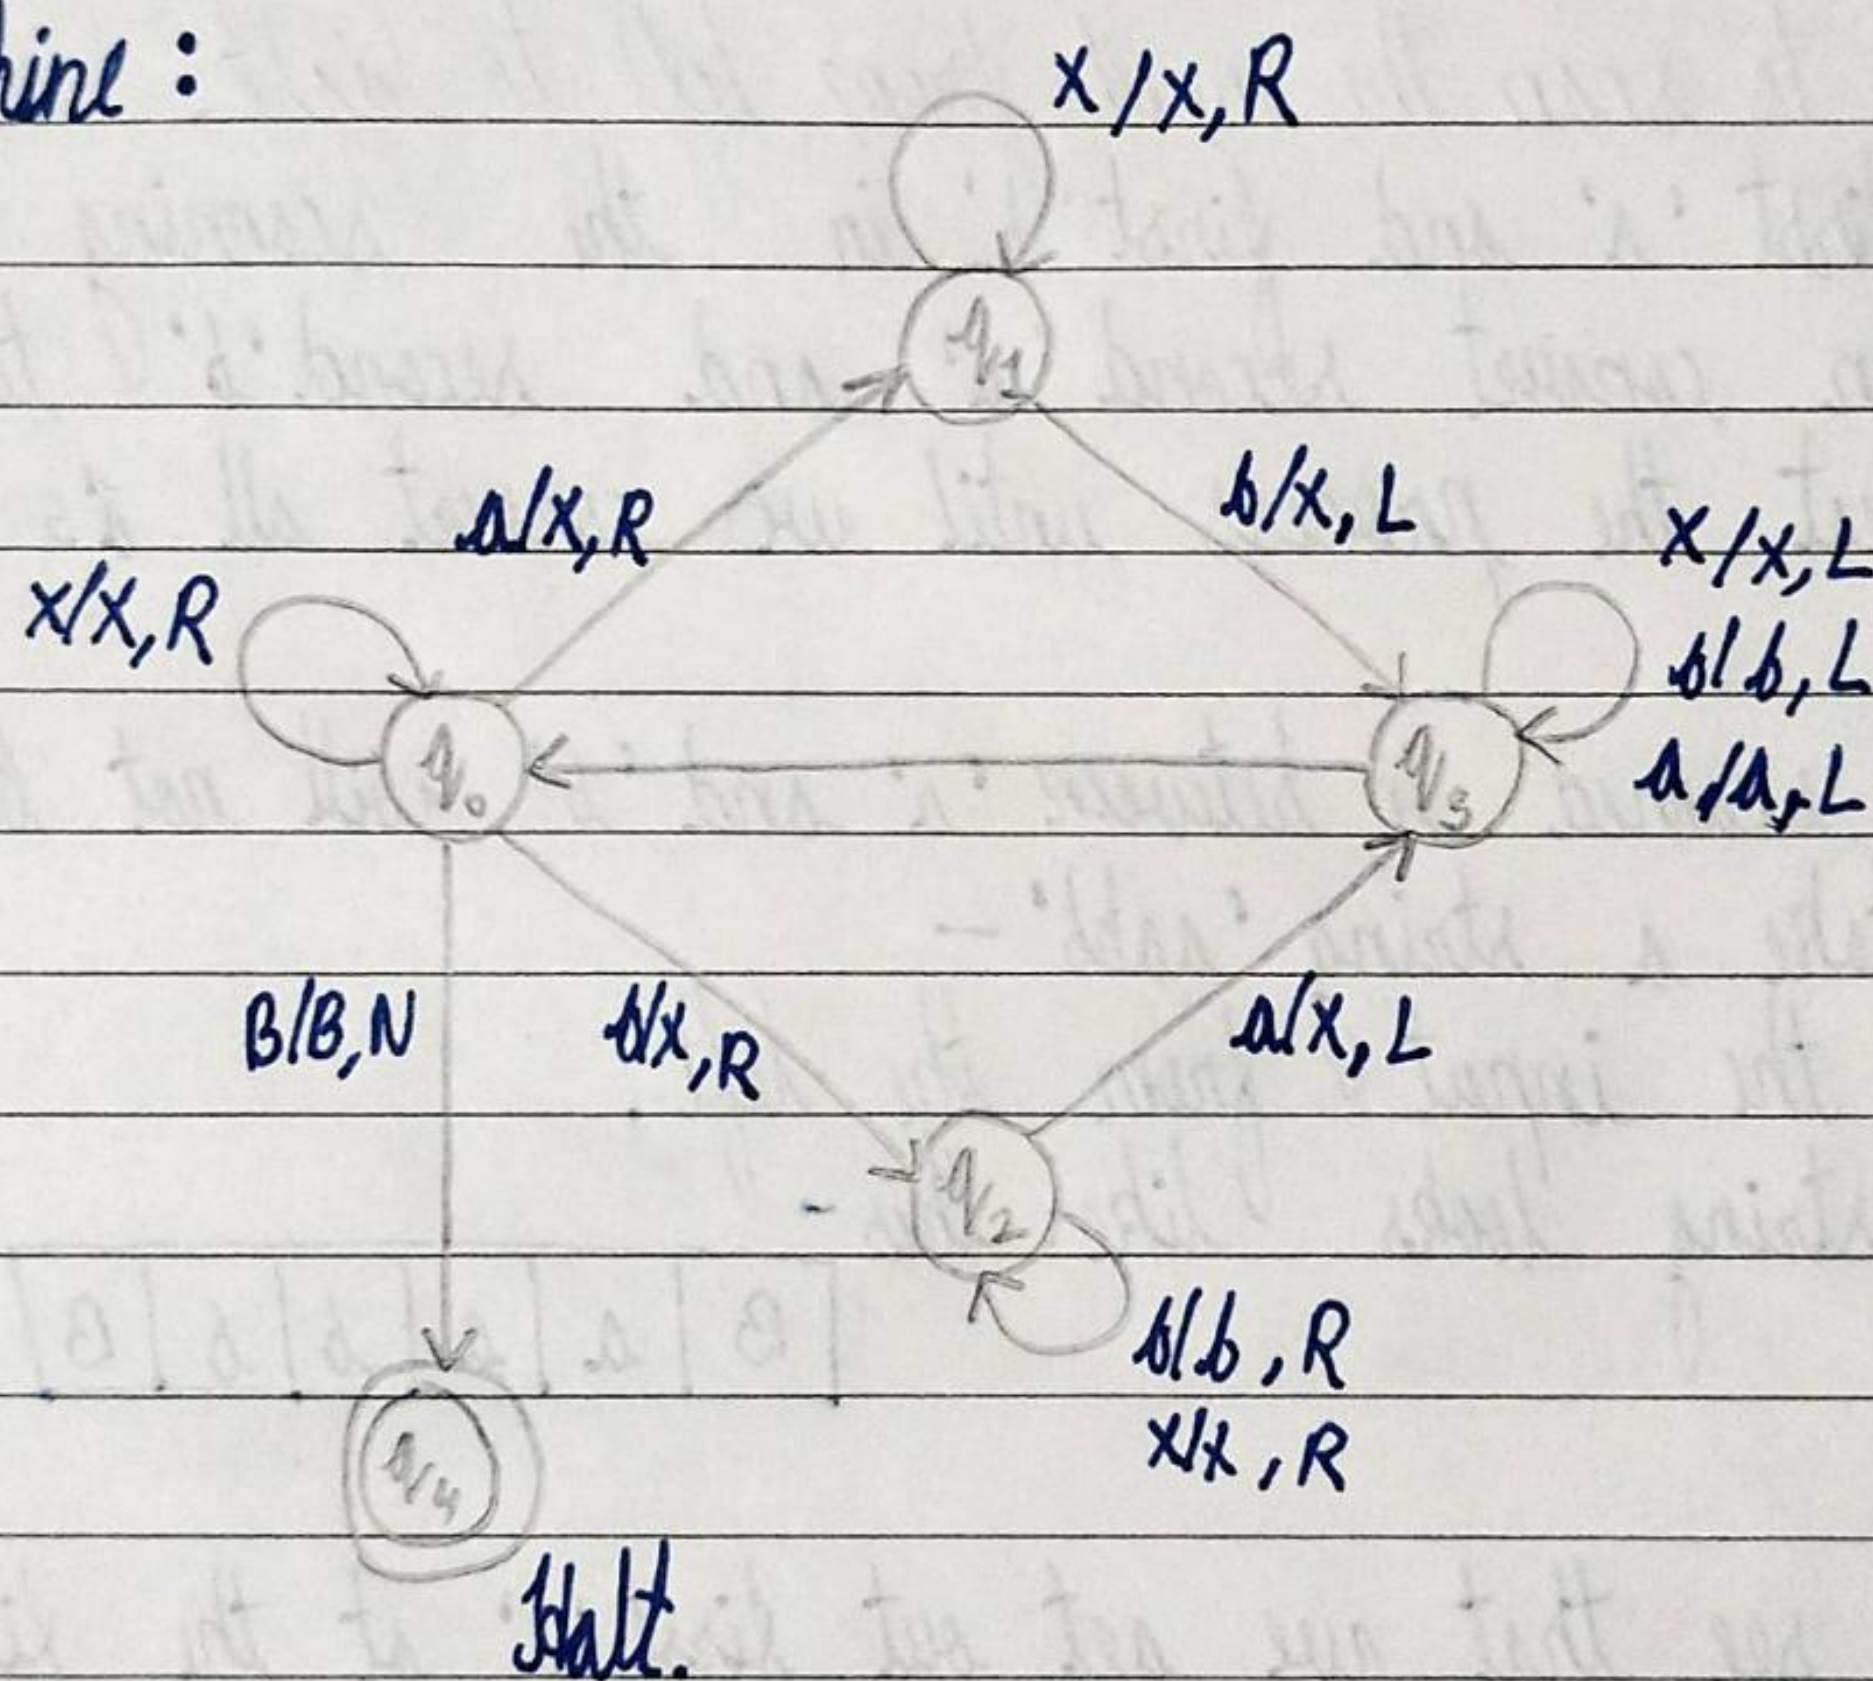 hine :
X/X, R
q1
a/X, R
b/X, L
X/X, L
X/X, R
b/b, L
q0
q3
a/a, L
B/B, N
b/X, R
a/X, L
q2
b/b, R
X/X, R
q4
Halt.